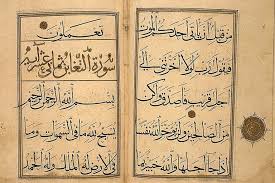 من قبل ان ياتي احدكم الموت
فيقول رب لولا اخرتني الى
اجل قريب فاصدق واكن
من الصالحين ولن يؤخر الله نفسا
اذا جا اجلها والله خبير بما
تعملون
سورة التغابن ثماني عشر آية
بسم الله الرحمن الرحيم
يسبح لله ما في السموات وما
في الارض له الملك وله الحمد